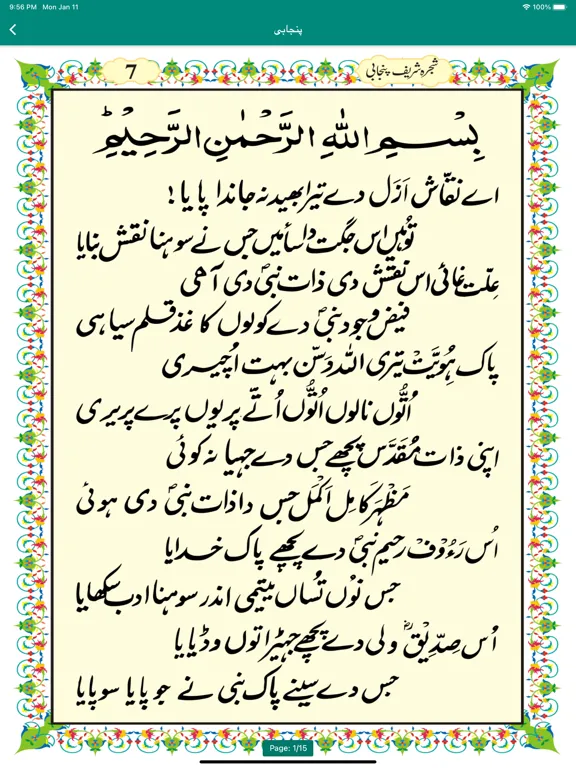 9:56 PM Mon Jan 11 100%
پنجابی
7 شجرہ شریف پنجابی
بِسْمِ اللهِ الرَّحْمٰنِ الرَّحِیْمِ
اے نقّاش اَزَل دے تیرا بھید نہ جاندا پایا!
تُوہیں اس جگت دا سائیں جس نے سوہنا نقش بنایا
عِلّت غائی اس نقش دی ذات نبیؐ دی آھی
فیض وجود نبیؐ دے کولوں کاغذ قلم سیاہی
پاک ہُوِیَّت تیری اللہ دَسّن بہت اُچیری
اُتُّوں نالوں اُتُّوں اُتّے پریوں پرے پریری
اپنی ذات مُقَدَّس پچھے جس دے جہیا نہ کوئی
مَظْہَر کامِل اَکْمَل جس دا ذات نبیؐ دی ہوئی
اُس رَءُوْف رحیم نبیؐ دے پچھے پاک خدایا
جس نوں تُساں یتیمی اندر سوہنا ادب سکھایا
اُس صِدِّیْقؓ ولی دے پچھے جہڑا توں وڈیایا
جس دے سینے پاک نبی نے جو پایا سو پایا
Page: 1/15